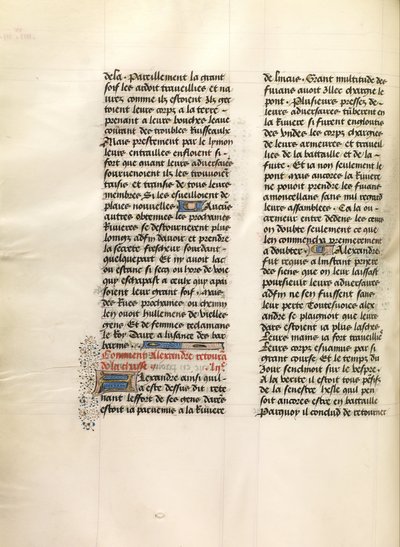 dela. Pareillement la grant
soif les aidoit traveillies et na
vrez comme ilz estoient Ilz get
toient leurs corps a la terre
prenant a leurs bouches leaue
courant des troubles Russeaulx
Maiz prestement par le lymon
leurs entrailles enfloient si
fort que quant leurs adversaires
sourvenoient ilz les trouvoient
transis de tous leurs
membres Si les esveilloient de
playes nouvelles Aucuns
autres obtermes les prochaines
Rivieres se destournerent plus
loings adfin davoir et prendre
la secrete fresheur sourdant
quelquepart Et ny avoit lac
ou estanc si secq ou hors de voie
qui eschapast a ceulx qui apai
soient leur grant soif. maiz
des Rues prochaines ou chemin
len ouoit hullemens de vielles
gens Et de femmes reclamans
le Roy Daire a lusance des bar
barins.
Comment Alexandre retourna
de la chasse
Alexandre ainsi quil
a este dessus dit rete
nant leffort de ses gens daires
estoit ia parvenus a la Riviere
de lincus. Grant multitude des
fuians avoit illec chargie le
pont. Plusieurs pressez de
leurs adversaires tuberent en
la Riviere si furent engloutis
des undes les corps chargies
de leurs armeures et traveil
lies de la bataille et de la
fuite. Et ia non seulement le
pont maiz ancores la Riviere
ne pouoit prendre les fuians
amoncellans sans nul regard
leurs assemblees. Ca la ou
cremeur entre dedens les cuers
on doubte seulement ce que
len commenca premierement
a doubter. Alexandre
fut requis a linstant priere
des siens que on leur laissast
poursieuir leurs adversaires
adfin ne sen fuissent sans
leur perte Toutesvoies alex
andre se plaignoit que leurs
dars estoient ia plus lasches
Leurs mains ia fort traveillies
Leurs corps esvanuis par si
grant course Et le temps du
Jour senclinoit sur le vespre.
A la verite il estoit tous
de la senestre helle quil pen
soit ancores estre en bataille
Parquoy il conclud de retourner